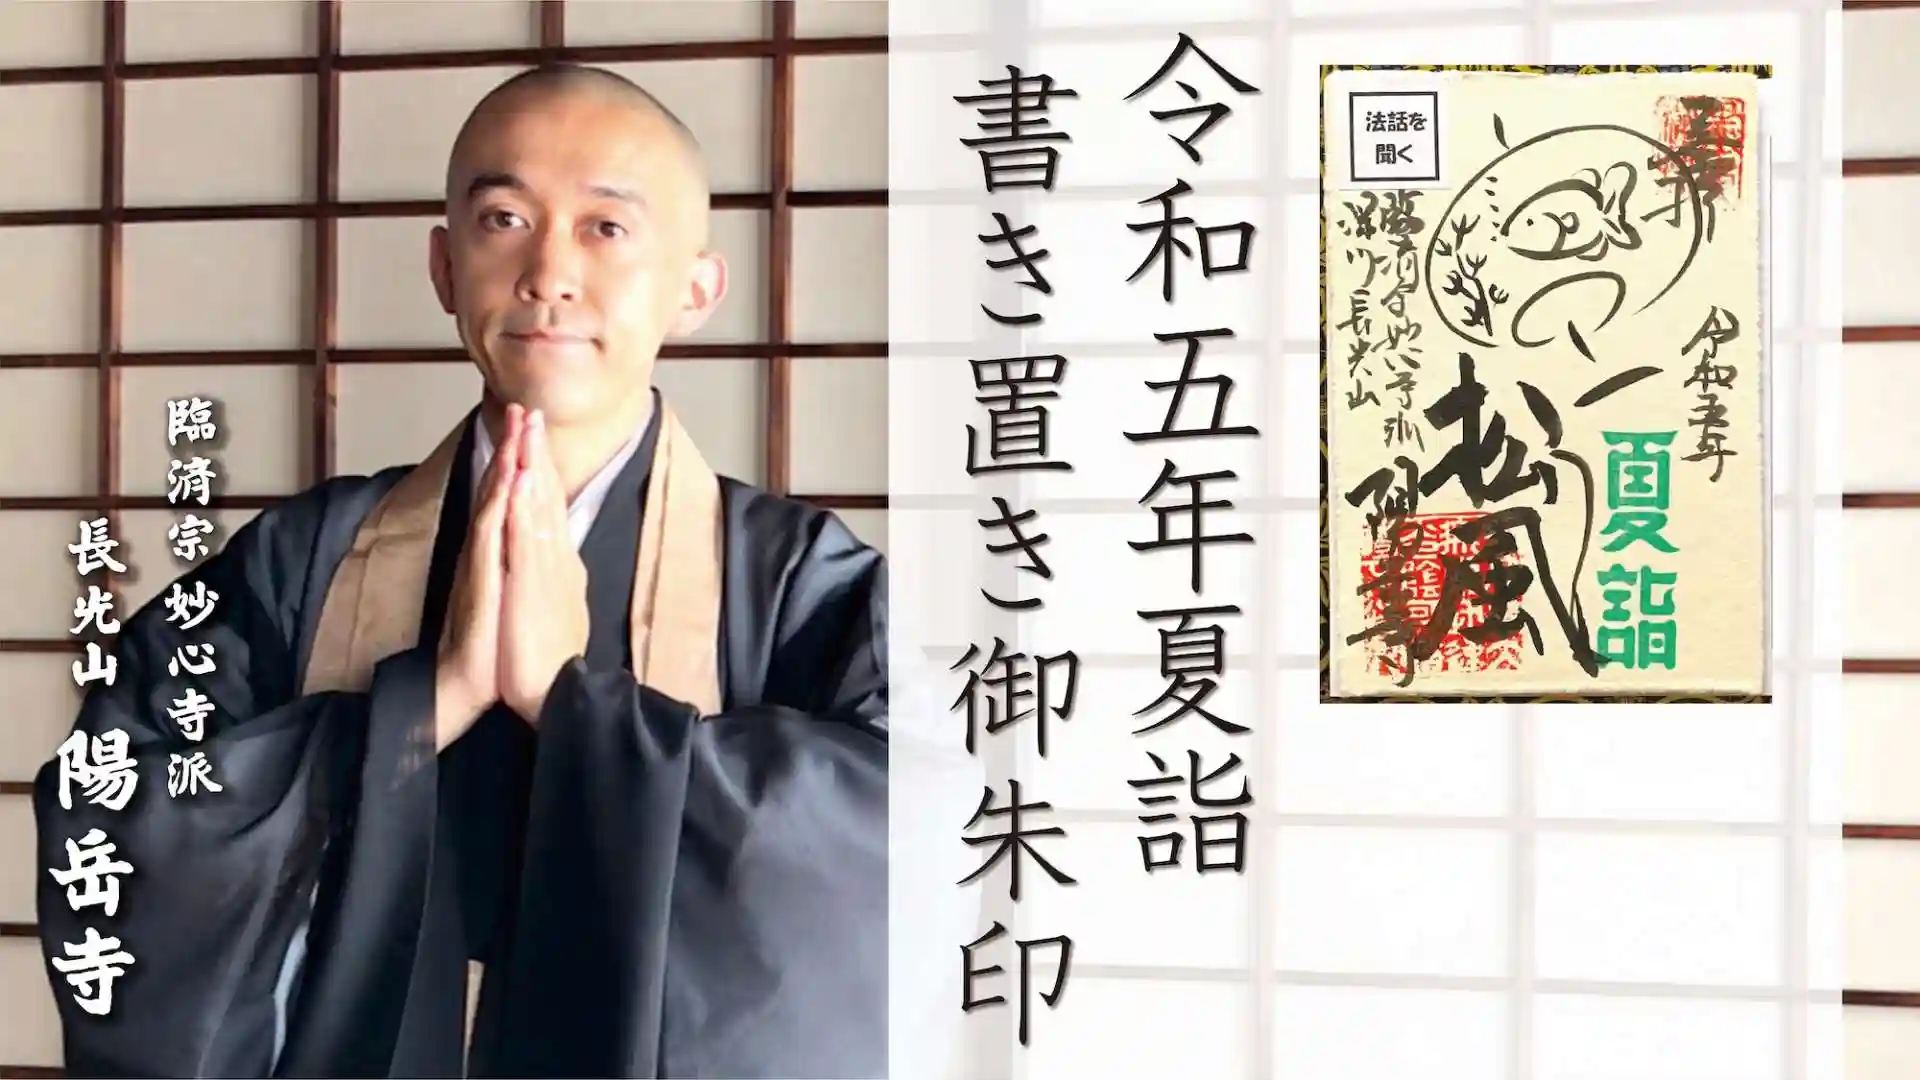 令和五年夏詣
書き置き御朱印
臨済宗妙心寺派
長光山 陽岳寺
法話を
聞く
令和五年
夏詣
松風
臨済宗妙心寺派
深川長光山
陽岳寺